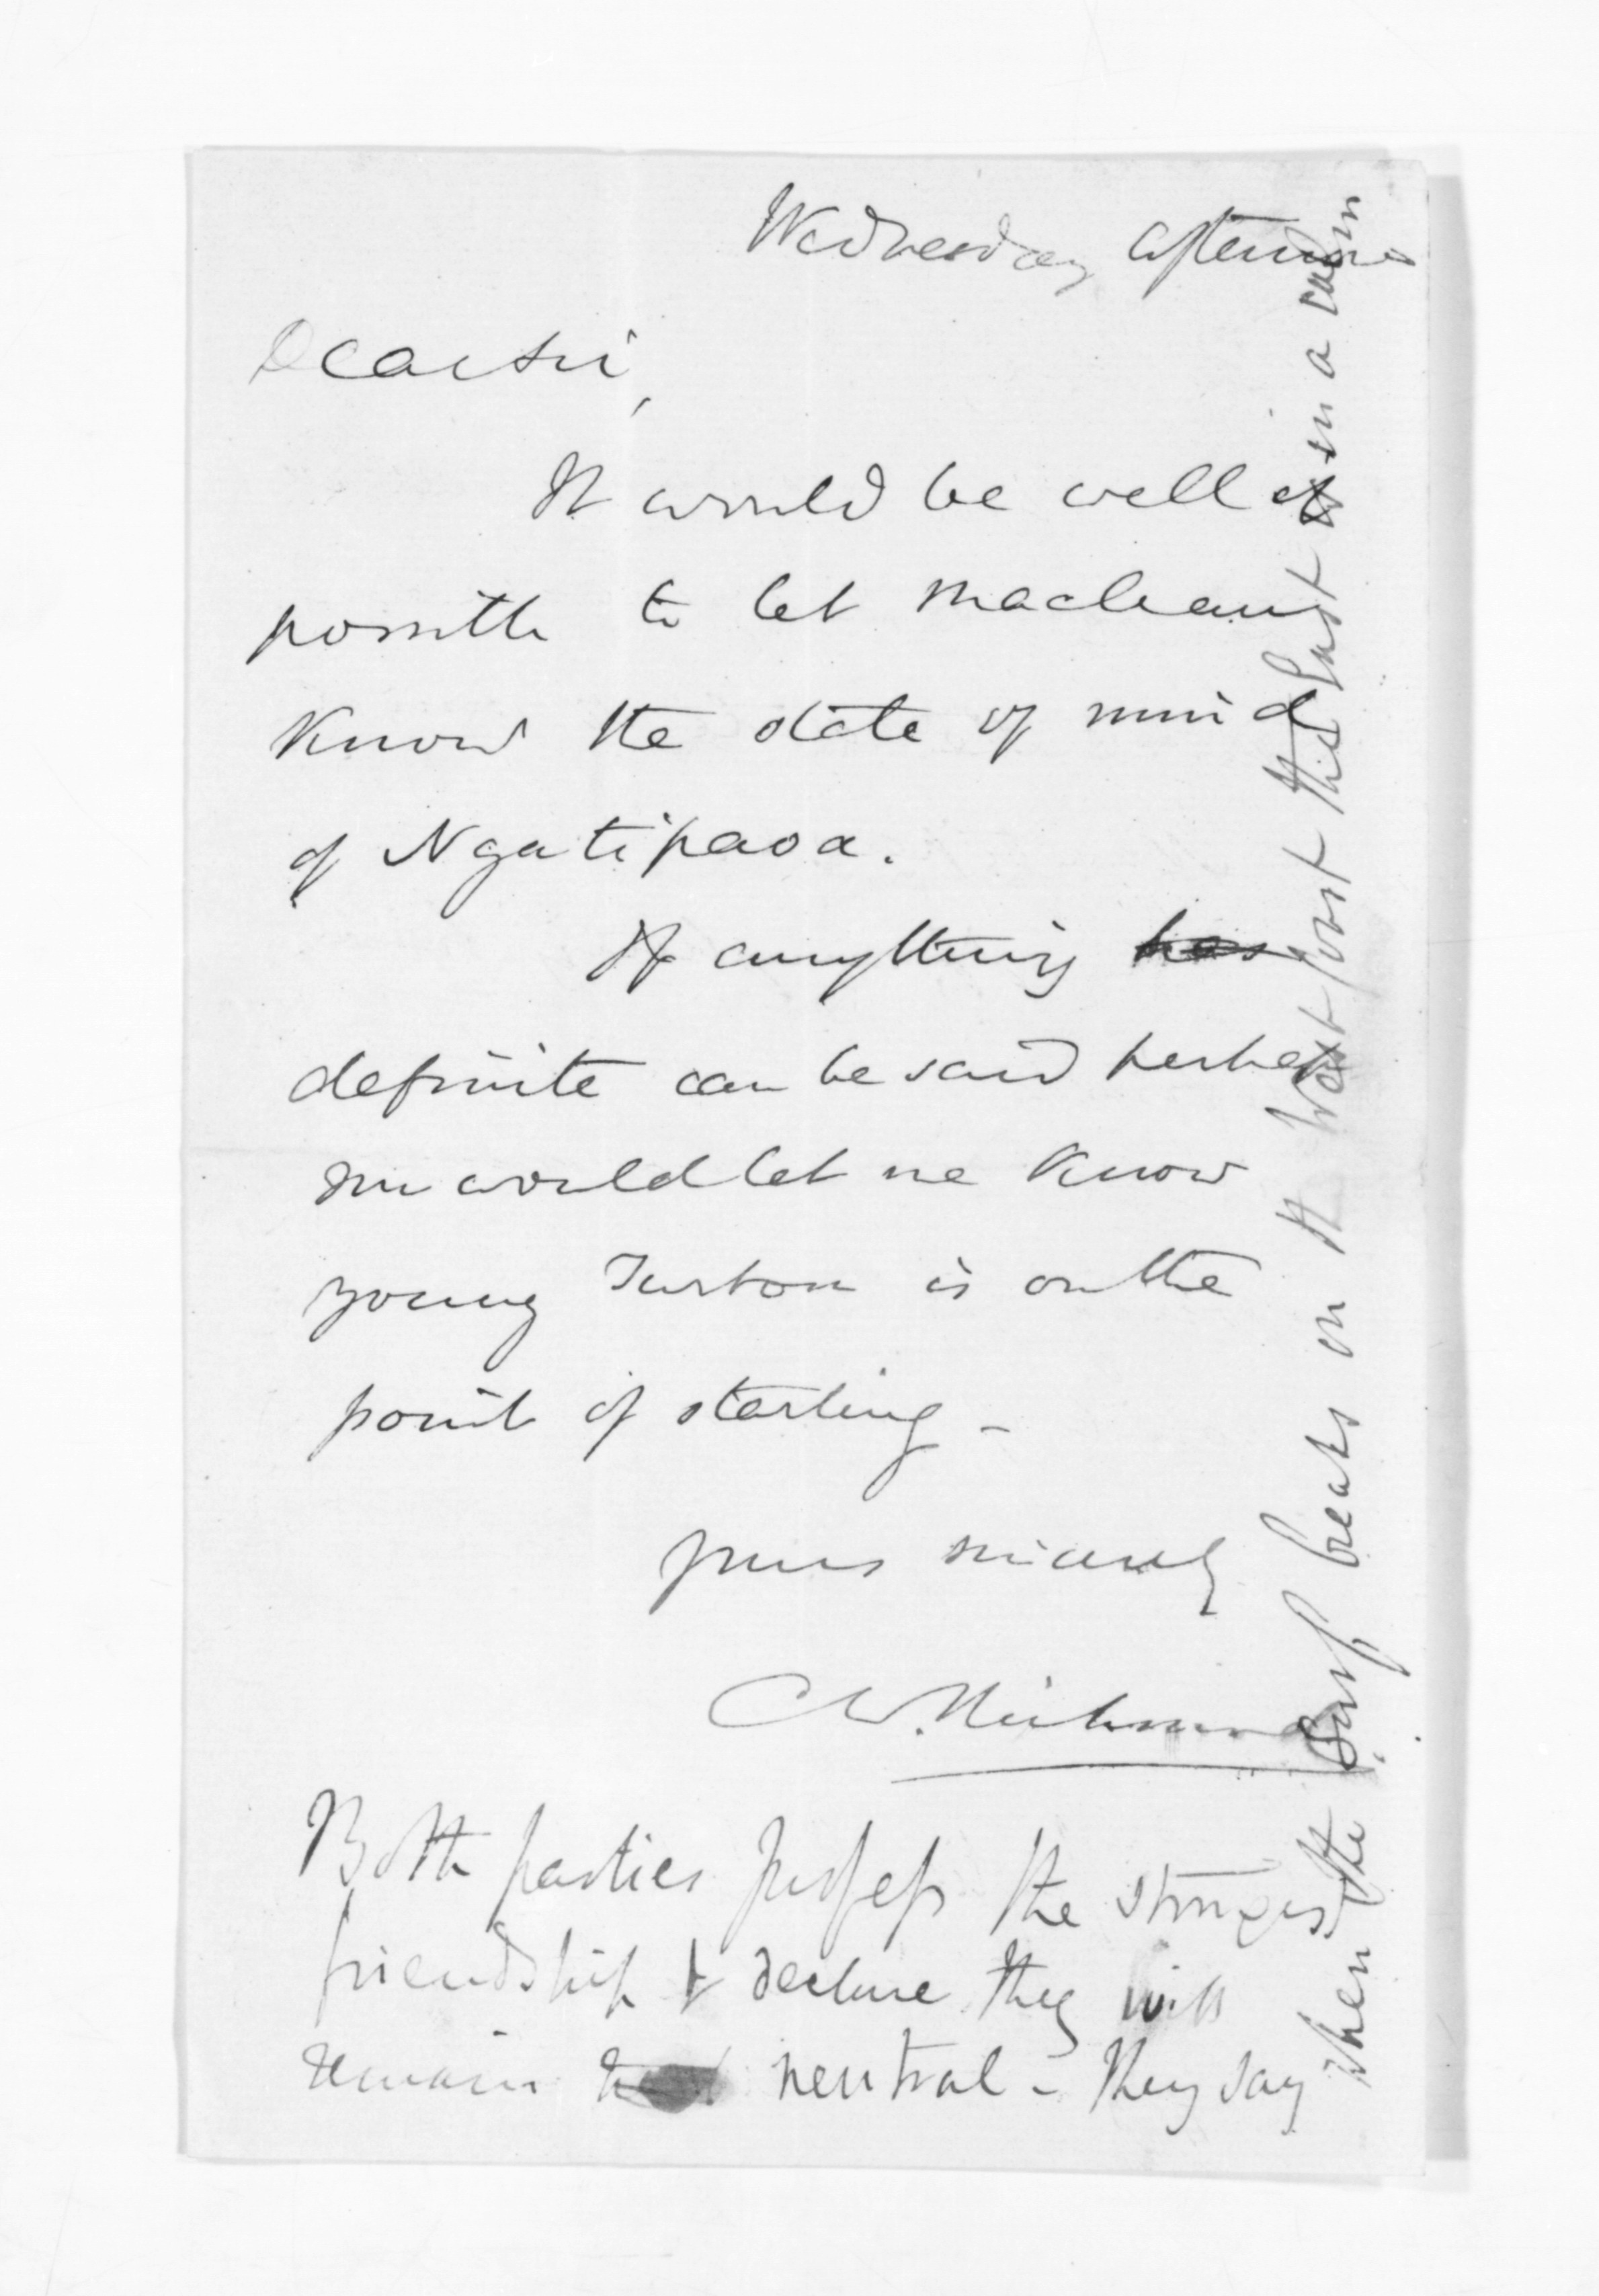 Wednesday afternoon
Dear Sir,
It would be well if
possible to let Macleans
know the state of mind
of Ngatipaoa.
If anything has
definite can be said perhaps
you would let me know
young Turton is on the
point of starting -
Yours sincerely
CW. Richmond
Both parties profess the strongest
friendship & declare they will
remain neutral - They say
when the surf breaks on the West coast the East is in a calm